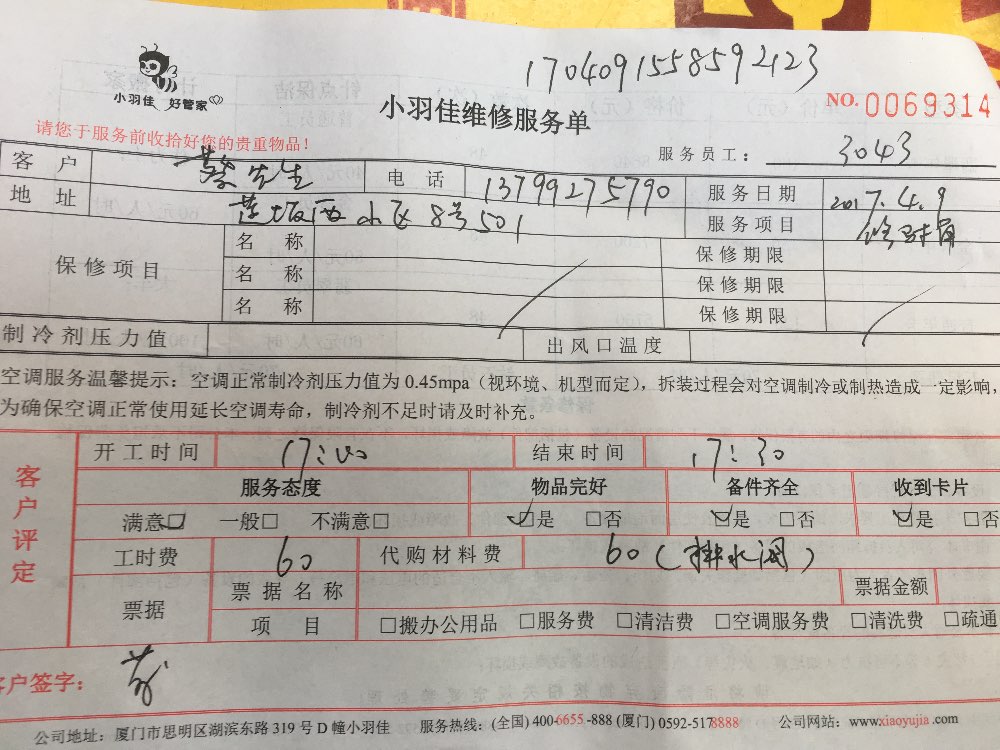 1704091558592123
小羽佳 好管家
小羽佳维修服务单
NO. 0069314
请您于服务前收拾好您的贵重物品！
服务员工： 3043
客户 蔡先生 电话 13799275790 服务日期 2017.4.9
地址 莲坂西小区8号501 服务项目
保修项目 名称 保修期限
名称 保修期限
名称 保修期限
制冷剂压力值 出风口温度
空调服务温馨提示：空调正常制冷剂压力值为0.45mpa（视环境、机型而定），拆装过程会对空调制冷或制热造成一定影响，
为确保空调正常使用延长空调寿命，制冷剂不足时请及时补充。
客户评定
开工时间 17:00 结束时间 17:30
服务态度 物品完好 备件齐全 收到卡片
满意☑ 一般□ 不满意□ ☑是 □否 ☑是 □否 ☑是 □否
工时费 60 代购材料费 60（排水阀）
票据 票据名称 票据金额
项目 □搬办公用品 □服务费 □清洁费 □空调服务费 □清洗费 □疏通
客户签字：
公司地址：厦门市思明区湖滨东路319号D幢小羽佳 服务热线：(全国) 400-6655-888 (厦门) 0592-5178888 公司网站：www.xiaoyujia.com